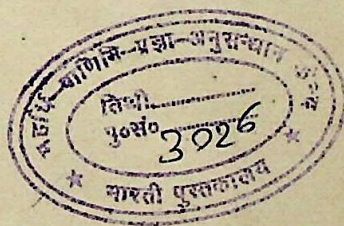 महर्षि-पाणिनि-प्रज्ञा-अनुसन्धान केन्द्र
तिथी..............
पु०सं० 3026
भारती पुस्तकालय